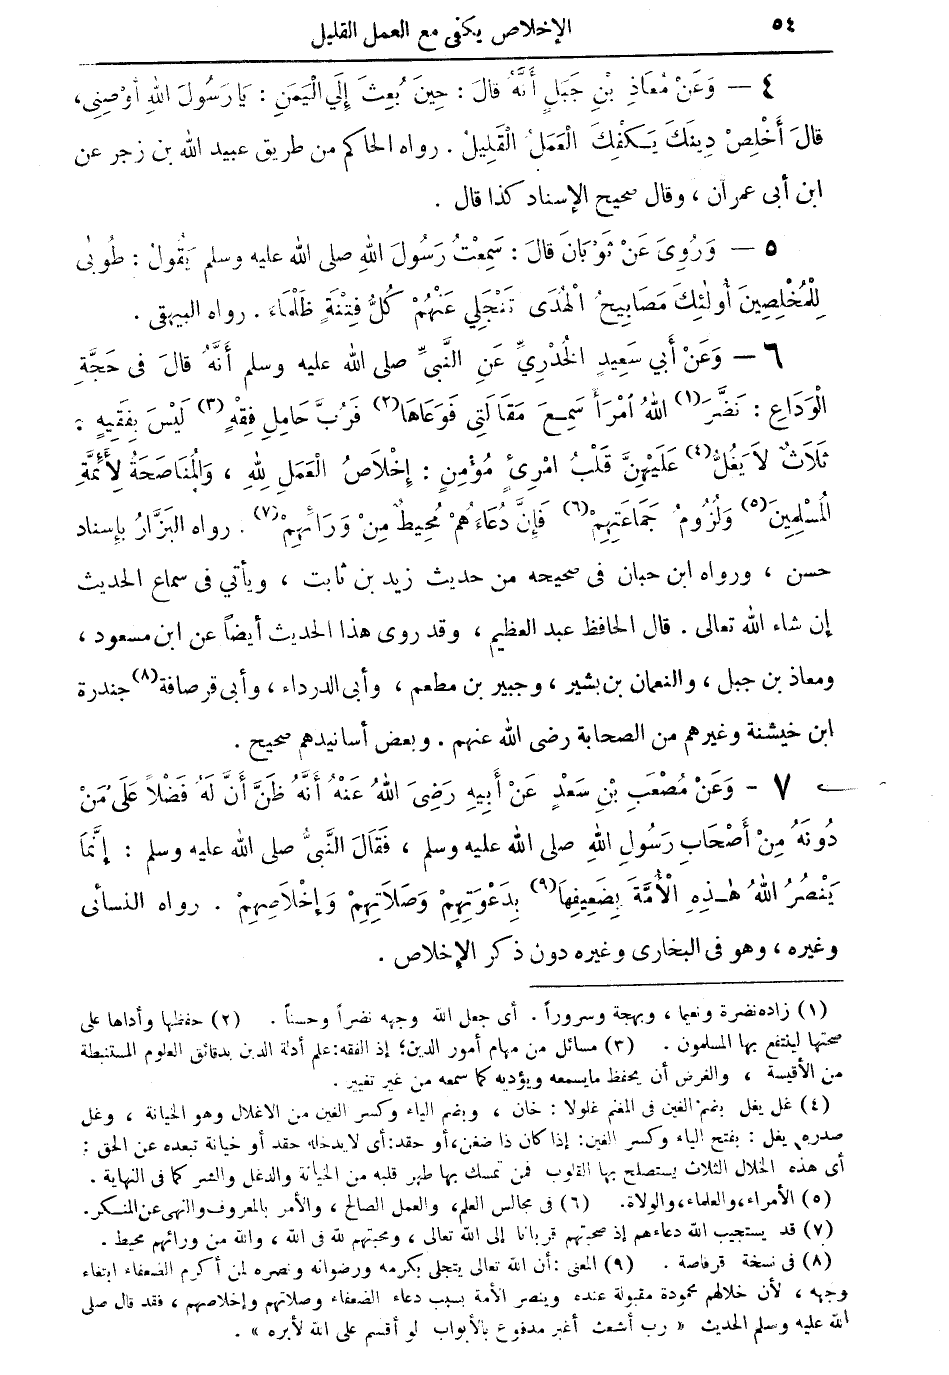 ٥٤
الإخلاص يكفى مع العمل القليل
٤ — وَعَنْ مُعَاذِ بْنِ جَبَلٍ أَنَّهُ قالَ : حِينَ بُعِثَ إِلَي الْيَمَنِ : يَا رَسُولَ اللهِ أَوْصِنِى،
قالَ أَخْلِصْ دِينَكَ يَكْفِكَ الْعَمَلُ الْقَلِيلُ . رواه الحاكم من طريق عبيد الله بن زجر عن
ابن أبى عمران ، وقال صحيح الإسناد كذا قال .
٥ — وَرُوِىَ عَنْ ثَوْبَانَ قالَ : سَمِعْتُ رَسُولَ اللهِ صلى الله عليه وسلم يَقُولُ : طُوبٰى
لِلْمُخْلِصِينَ أُولٰئِكَ مَصَابِيحُ الْهُدَى تَنْجَلِي عَنْهُمْ كُلُّ فِتْنَةٍ ظَلْمَاءَ . رواه البيهقى .
٦ — وَعَنْ أَبي سَعِيدٍ الْخُدْرِيِّ عَنِ النَّبيِّ صلى الله عليه وسلم أَنَّهُ قالَ فى حَجَّةِ
الْوَدَاعِ : نَضَّرَ(١) اللهُ امْرَأً سَمِعَ مَقَالَتِي فَوَعَاهَا(٢) فَرُبَّ حَامِلِ فِقْهٍ(٣) لَيْسَ بِفَقِيهٍ :
ثَلَاثٌ لاَ يَغُلُّ(٤) عَلَيْهِنَّ قَلْبُ امْرِئٍ مُؤْمِنٍ : إِخْلاَصُ الْعَمَلِ لِلهِ ، وَالْمُنَاصَحَةُ لِأَئِمَّةِ
الْمُسْلِمِينَ(٥) وَلُزُومُ جَمَاعَتِهِمْ(٦) فَإِنَّ دُعَاءَهُمْ مُحِيطٌ مِنْ وَرَائِهِمْ(٧) . رواه البَزَّارُ بإسناد
حسن ، ورواه ابن حبان فى صحيحه من حديث زيد بن ثابت ، ويأتي فى سماع الحديث
إن شاء الله تعالى . قال الحافظ عبد العظيم ، وقد روى هذا الحديث أيضاً عن ابن مسعود ،
ومعاذ بن جبل ، والنعمان بن بشير ، وجبير بن مطعم ، وأبى الدرداء ، وأبى قرصافة(٨) جندرة
ابن خيشنة وغيرهم من الصحابة رضى الله عنهم . وبعض أسانيدهم صحيح .
٧ - وَعَنْ مُصْعَبِ بْنِ سَعْدٍ عَنْ أَبِيهِ رَضِىَ اللهُ عَنْهُ أَنَّهُ ظَنَّ أَنَّ لَهُ فَضْلاً عَلَى مَنْ
دُونَهُ مِنْ أَصْحَابِ رَسُولِ اللهِ صلى الله عليه وسلم ، فَقَالَ النَّبيُّ صلى الله عليه وسلم : إِنَّمَا
يَنْصُرُ اللهُ هٰذِهِ الْأُمَّةَ بِضَعِيفِهَا(٩) بِدَعْوَتِهِمْ وَصَلَاتِهِمْ وَإِخْلَاصِهِمْ . رواه النسائى
وغيره ، وهو فى البخارى وغيره دون ذكر الإخلاص .
(١) زاده نضرة ونعيما ، وبهجة وسروراً . أى جعل الله وجهه نضراً وحسناً . (٢) حفظها وأداها على
صحتها لينتفع بها المسلمون . (٣) مسائل من مهام أمور الدين؛ إذ الفقه: علم أدلة الدين بدقائق العلوم المستنبطة
من الأقيسة ، والغرض أن يحفظ مايسمعه ويؤديه كما سمعه من غير تغيير .
(٤) غل يغل بضم الغين فى المغنم غلولا : خان ، وبضم الياء وكسر الغين من الاغلال وهو الخيانة ، وغل
صدره يغل : بفتح الياء وكسر الغين: إذا كان ذا ضغن، أو حقد: أى لايدخله حقد أو خيانة تبعده عن الحق :
أى هذه الخلال الثلاث يستصلح بها القلوب فمن تمسك بها طهر قلبه من الخيانة والدغل والشر كما فى النهاية .
(٥) الأمراء، والعلماء، والولاة. (٦) فى مجالس العلم، والعمل الصالح ، والأمر بالمعروف والنهى عن المنكر.
(٧) قد يستجيب الله دعاءهم إذ صحبتهم قربانا إلى الله تعالى ، ومحبتهم لله فى الله ، والله من ورائهم محيط .
(٨) فى نسخة قرفاصة . (٩) المعنى : أن الله تعالى يتجلى بكرمه ورضوانه ونصره لمن أكرم الضعفاء ابتغاء
وجهه ، لأن خلالهم محمودة مقبولة عنده وينصر الأمة بسبب دعاء الضعفاء وصلاتهم وإخلاصهم ، فقد قال صلى
الله عليه وسلم الحديث « رب أشعث أغبر مدفوع بالأبواب لو أقسم على الله لأبره » .